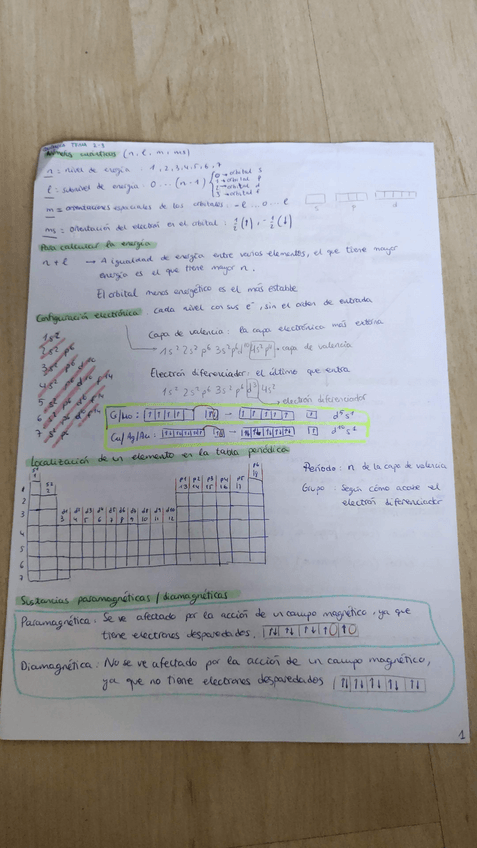 Números cuánticos (n, l, m, ms)
n = nivel de energía : 1, 2, 3, 4, 5, 6, 7
l = subnivel de energía : 0 ... (n-1)
0 → orbital s
1 → orbital p
2 → orbital d
3 → orbital f
m = orientaciones espaciales de los orbitales : -l ... 0 ... l
s p d
ms = orientación del electrón en el orbital : 1/2 (↑) , -1/2 (↓)
Para calcular la energía
n + l → A igualdad de energía entre varios elementos, el que tiene mayor
energía es el que tiene mayor n.
El orbital menos energético es el más estable
Configuración electrónica : cada nivel con sus e⁻, sin el orden de entrada
Capa de valencia : la capa electrónica más externa
1s² 2s² p⁶ 3s² p⁶ d¹⁰ 4s² p⁴ → capa de valencia
Electrón diferenciador : el último que entra
1s² 2s² p⁶ 3s² p⁶ d² 4s²
electrón diferenciador
1 s²
2 s² p⁶
3 s² p⁶ d¹⁰
4 s² p⁶ d¹⁰ f¹⁴
5 s² p⁶ d¹⁰ f¹⁴
6 s² p⁶ d¹⁰
7 s² p⁶
Cr/Mo : d⁵s¹
Cu/Ag/Au : d¹⁰s¹
Localización de un elemento en la tabla periódica
s1 1
s2 2
d1 d2 d3 d4 d5 d6 d7 d8 d9 d10
3 4 5 6 7 8 9 10 11 12
p1 p2 p3 p4 p5 p6
13 14 15 16 17 18
1
2
3
4
5
6
7
Periodo : n de la capa de valencia
Grupo : Según cómo acabe el
electrón diferenciador
Sustancias paramagnéticas / diamagnéticas
Paramagnética : Se ve afectado por la acción de un campo magnético, ya que
tiene electrones desapareados.
Diamagnética : No se ve afectado por la acción de un campo magnético,
ya que no tiene electrones desapareados
1